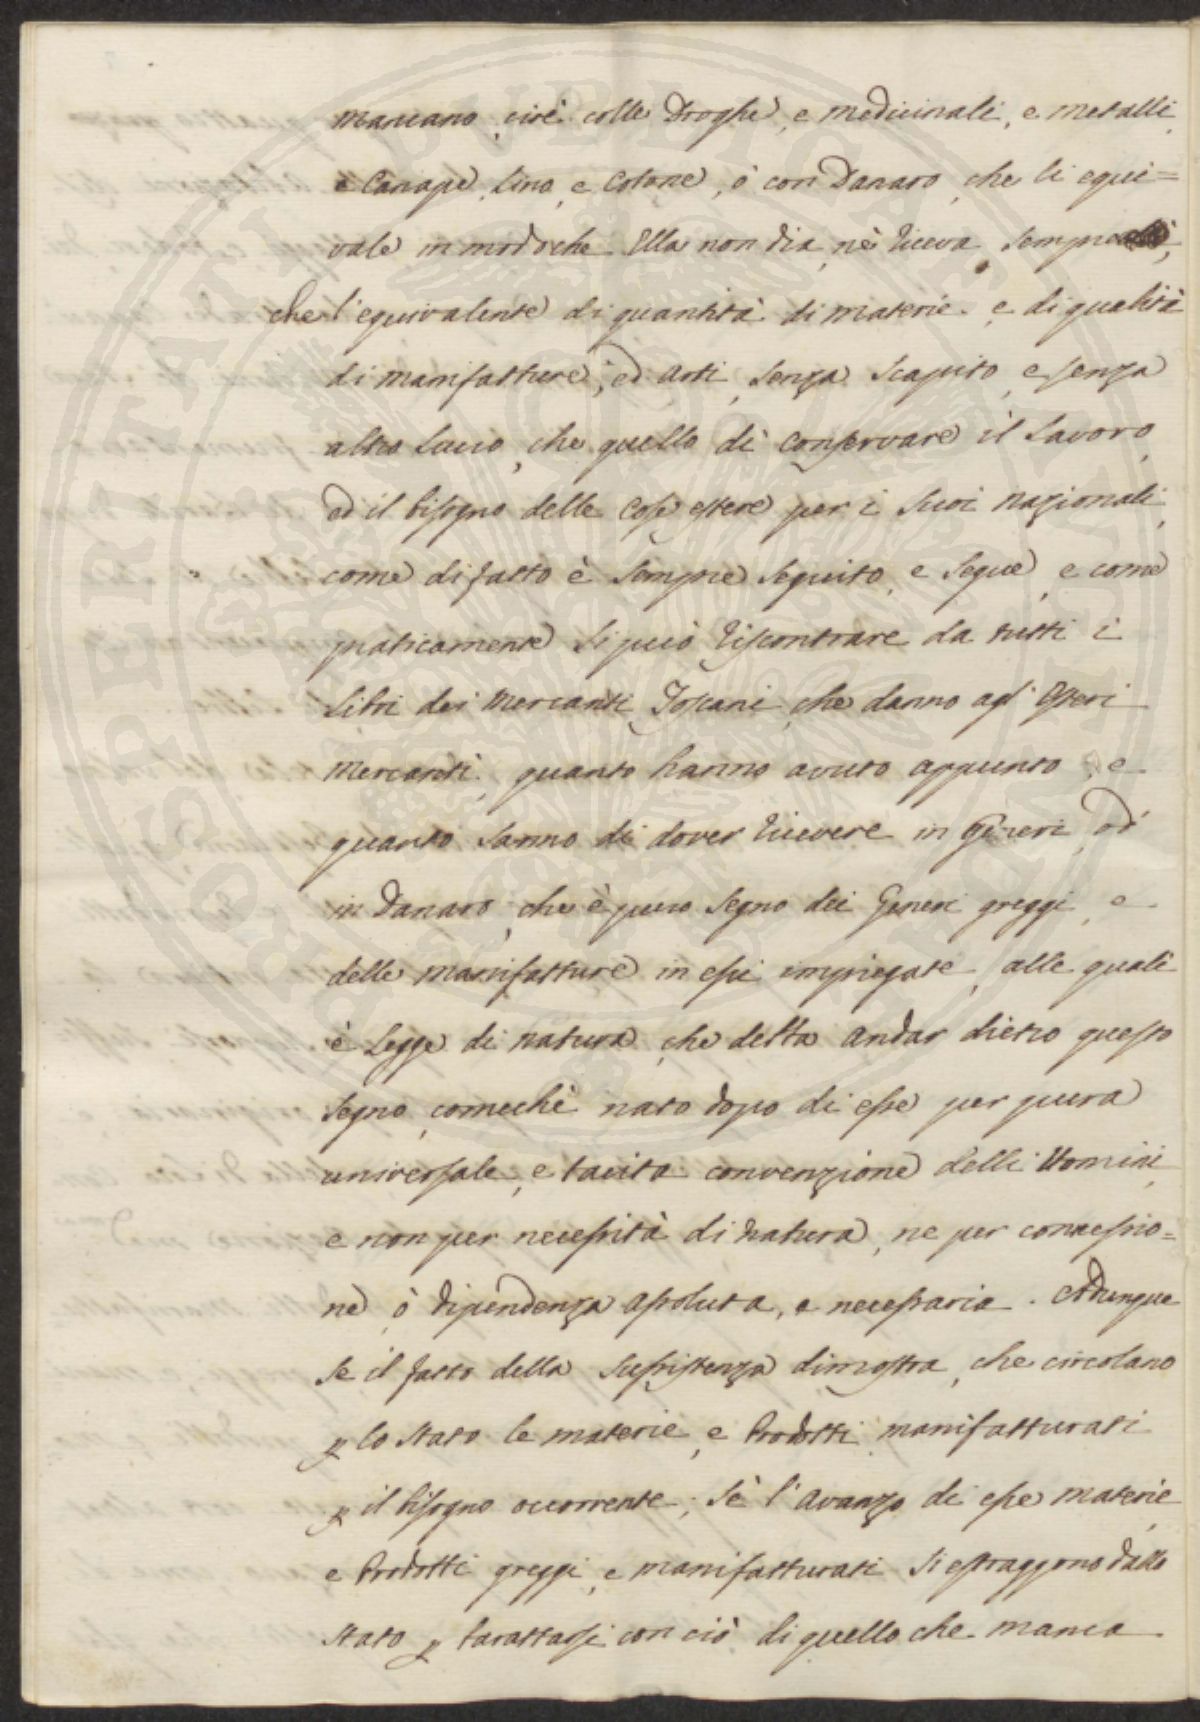 mancano, cioè colle Droghe, e medicinali, e metalli,
e Canape, Lino, e Cotone, ò con Danaro, che li equi=
vale in modoche Ella non dia, nè riceva sempre
che l'equivalente di quantità di materie, e di qualità
di manifatture, ed Arti, senza scapito, e senza
altro lucro, che quello di conservare il lavoro,
ed il bisogno delle cose estere per i suoi nazionali,
come di fatto è sempre seguito, e segue, e come
praticamente si può riscontrare da tutti i
Libri dei Mercanti Toscani, che danno agl'Esteri
Mercanti, quanto hanno avuto appunto, e
quanto sanno di dover ricevere in Generi, od
in Danaro, che è puro segno dei Generi greggi, e
delle manifatture in essi impiegate, alle quali
è Legge di natura, che detta andar dietro questo
segno, comechè nato dopo di esse per pura
universale, e tacita convenzione delli Uomini,
e non per necessità di natura, ne per connessio=
ne, ò dipendenza assoluta, e necessaria. Adunque
se il fatto della sussistenza dimostra, che circolano
p lo stato le materie, e Prodotti manifatturati
p il bisogno occorrente; sè l'avanzo di esse materie,
e Prodotti greggi, e manifatturati si estraggono dallo
stato p barattarsi con ciò di quello che manca
PROSPERITATI PUBLICAE AUGENDAE